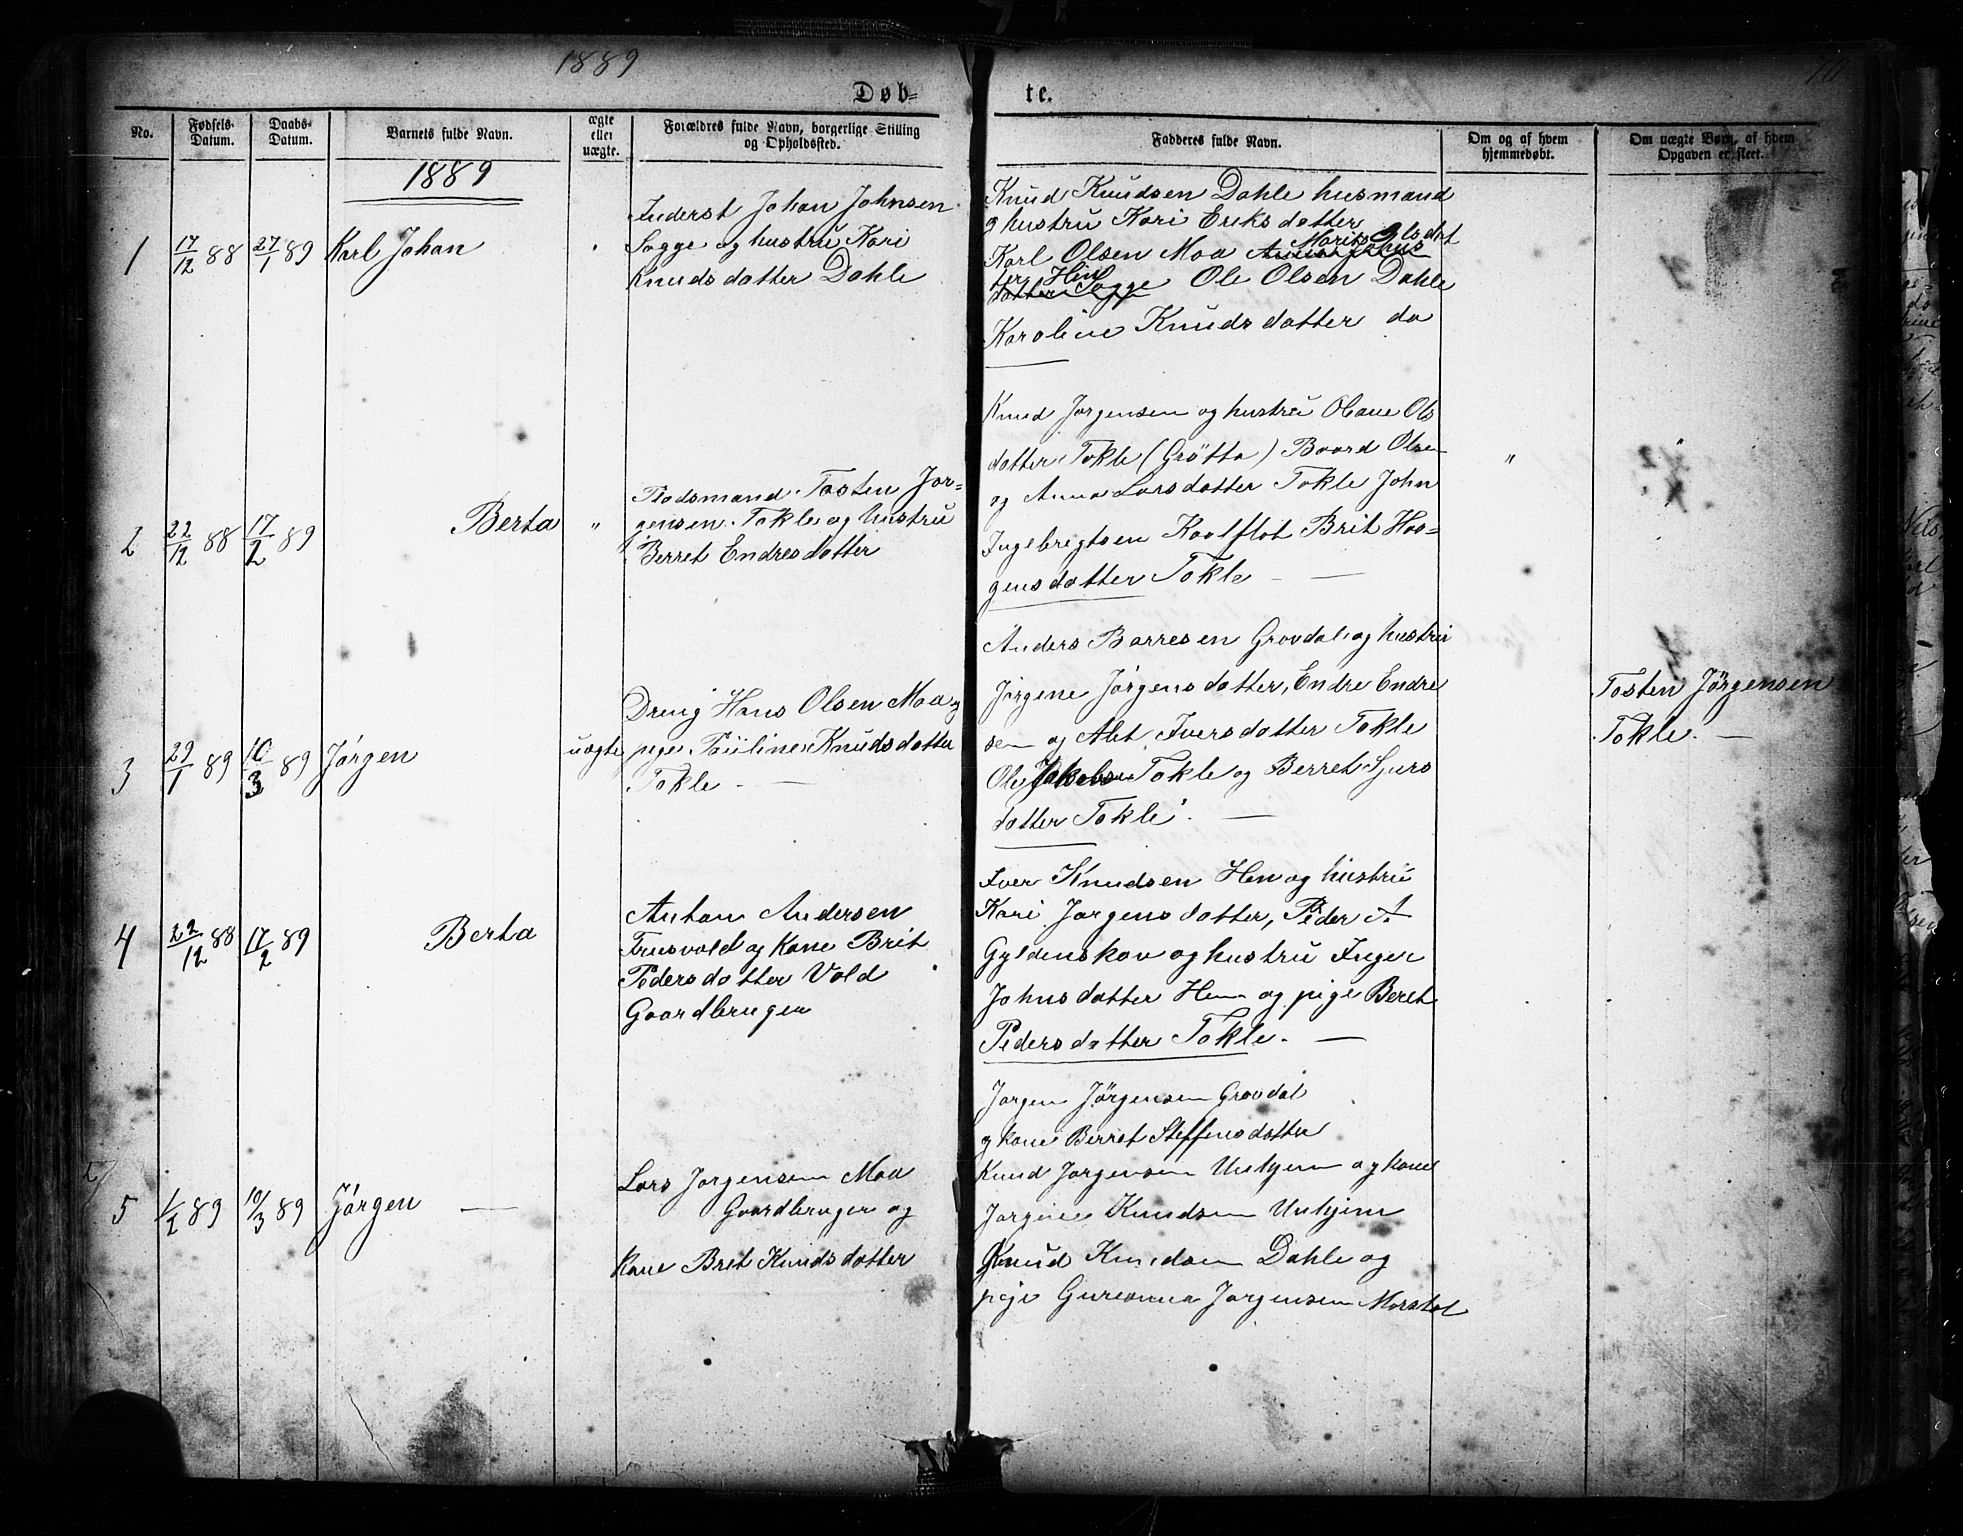 1889
70
Døb-
te.
No.
Fødsels-
Datum.
Daabs-
Datum.
Barnets fulde Navn.
ægte
eller
uægte.
Forældres fulde Navn, borgerlige Stilling
og Opholdssted.
Faddernes fulde Navn.
Om og af hvem
hjemmedøbt.
Om uægte Børn, af hvem
Opgaven er skeet.
1889
1
17/12 88
27/1 89
Karl Johan
Inderst Johan Johnsen
Sogge og hustru Kari
Knudsdatter Dahle
Knud Knudsen Dahle husmand
g hustru Kari Eriksdatter
Karl Olsen Moa Marit Olsdat
ter Hen Ole Olsen Dahle
Karoline Knudsdatter do
2
22/12 88
17/2 89
Berta
"
Pladsmand Tosten Jor-
gensen Tokle og hustru
Berret Endresdatter
Knud Jorgensen og hustru Oliane Ols
datter Tokle (Grötta) Baard Olsen
og Anna Larsdatter Tokle John
Ingebregtsen Kaalflot Brit Haa-
gensdatter Tokle —
"
"
3
29/1 89
10/3 89
Jörgen
uægte
Dreng Hans Olsen Moa og
pige Pauline Knudsdatter
Tokle —
Anders Barresen Grovdal og hustru
Jörgine Jörgensdatter, Endre Endre
sen og Alet Iversdatter Tokle
Ole Jakobsen Tokle og Berret Sjurs
datter Tokle. —
Tosten Jörgensen
Tokle. —
4
22/12 88
17/2 89
Berta
Anton Andersen
Frusvold og Kone Brit
Pedersdatter Vold
Gaardbruger
Iver Knudsen Hen og hustru
Kari Jorgensdatter, Peder A
Gyldenskov og hustru Inger
Johnsdatter Hen og pige Beret
Pedersdatter Tokle. —
5
1/2 89
10/3 89
Jörgen —
Lars Jorgensen Moa
Gaardbruger og
Kone Brit Knudsdatter
Jorgen Jörgensen Grovdal
g kone Berret Steffensdatter
Knud Jorgensen Unhjem og kone
Jorgine Knudsen Unhjem
Knud Knudsen Dahle og
pige Gureanna Jorgensen Morstol